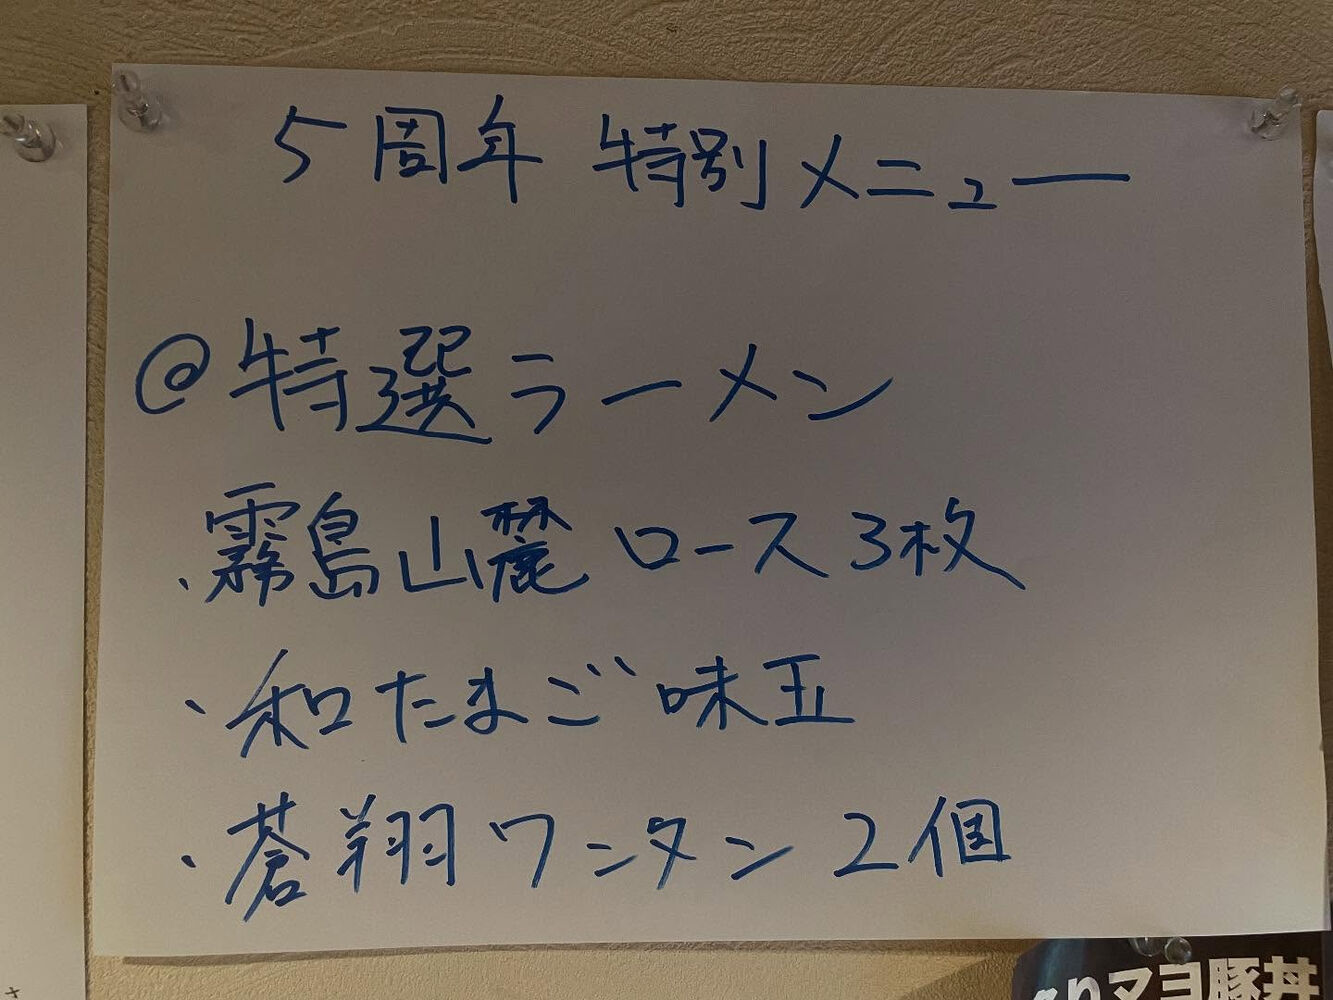 5周年 特別メニュー
@特選ラーメン
、霧島山麓 ロース3枚
、和たまご 味玉
、蒼翔ワンタン 2個
マヨ豚丼
さ